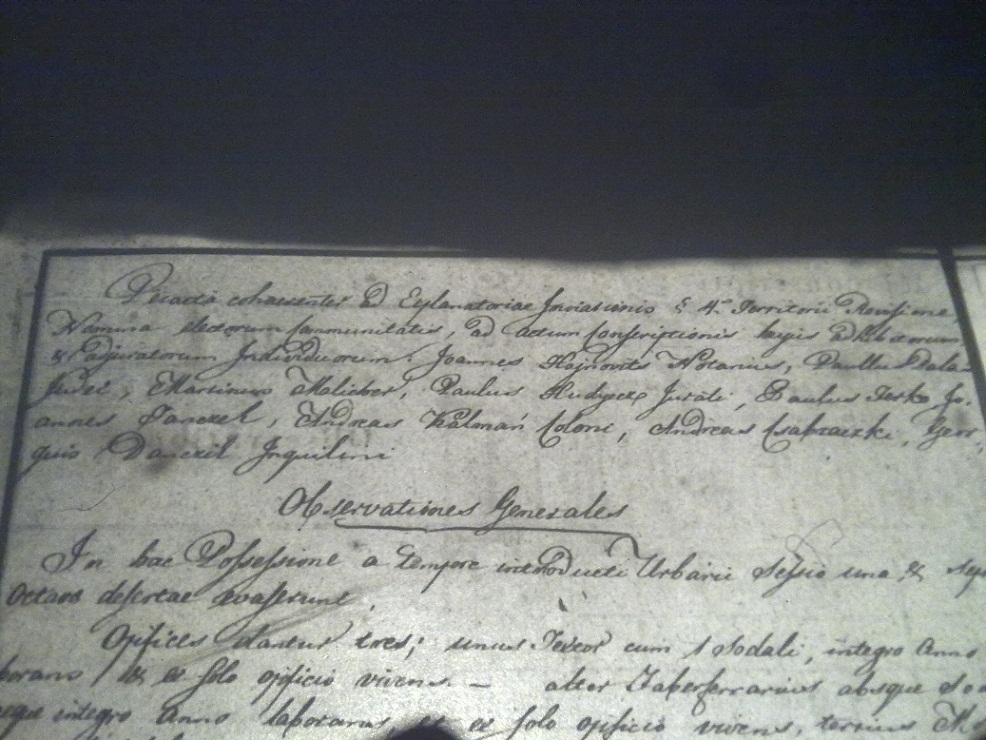 Peracta cohaerenter ad Explanatoriae Inviationis § 4. Territorii Revisione,
Nomina electorum Communitatis, ad actum Conscriptionis legis adhibitorum
& adjuratorum Individuorum: Joannes Hajnovits Notarius, Paullus Dala-
Judex, Martinus Malicher, Paulus Jurati, Paulus Jo-
annes Danczel, Andreas Kalmán Coloni, Andreas Geor-
gius Danczil Inquilini
Observationes Generales
In hac Possessione a tempore introducti Urbarii Sessio una &
Octavo desertae evaserunt,
Opifices dantur tres; unus Textor cum 1 Sodali, integro Anno
& ex solo opificio vivens – alter Faberferrarius absque
integro Anno laborans et ex solo opificio vivens, tertius